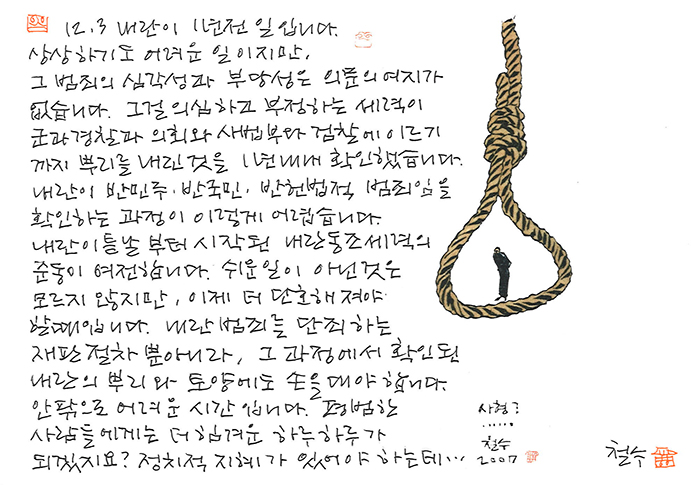 12.3 내란이 1년전 일입니다.
상상하기도 어려운 일이지만,
그 범죄의 심각성과 부당성은 의문의 여지가
없습니다. 그걸 의심하고 부정하는 세력이
군과 경찰과 의회와 사법부와 검찰에 이르기
까지 뿌리를 내린것을 1년내내 확인했습니다.
내란이 반민주·반국민·반헌법적 범죄임을
확인하는 과정이 이렇게 어렵습니다.
내란이튿날 부터 시작된 내란동조세력의
준동이 여전합니다. 쉬운일이 아닌것은
모르지 않지만, 이제 더 단호해져야
할때입니다. 내란 범죄를 단죄하는
재판 절차 뿐아니라, 그 과정에서 확인된
내란의 뿌리와 토양에도 손을대야 합니다.
안팎으로 어려운 시간입니다. 평범한
사람들에게는 더 힘겨운 하루하루가
되겠지요? 정치적 지혜가 있어야 하는데...
사형?
......
철수
2007
철수